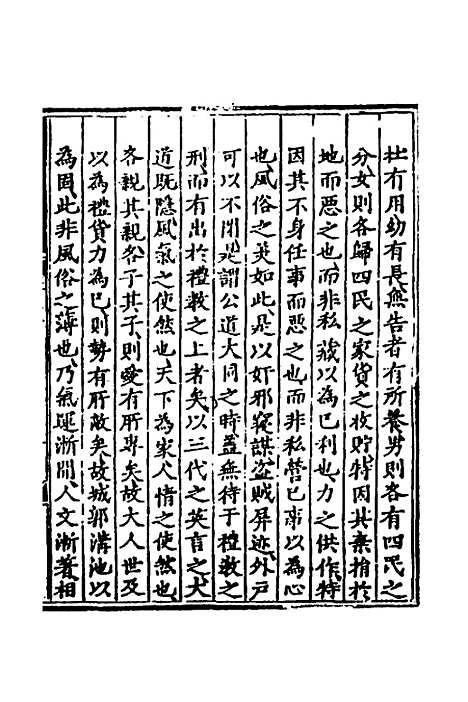 壯有用幼有長無告者有所養男則各有四民之
分女則各歸四民之家貨之收貯特因其棄捐於
地而惡之也而非私藏以為己利也力之供作特
因其不身任事而惡之也而非私營己事以為心
也風俗之美如此是以奸邪竊謀盜賊屏迹外戶
可以不閉是謂公道大同之時蓋無待于禮教之
刑而有出於禮教之上者矣以三代之英言之大
道既隱風氣之使然也天下為家人情之使然也
各親其親各子其子則愛有所專矣故大人世及
以為禮貨力為已則勢有所敵矣故城郭溝池以
為固此非風俗之薄也乃氣運漸開人文漸著相